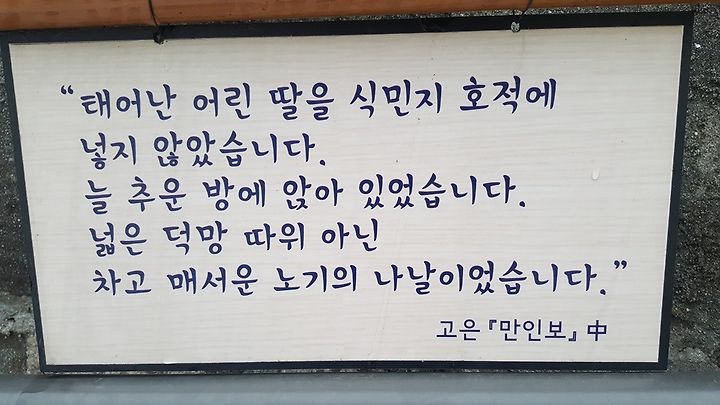 “태어난 어린 딸을 식민지 호적에
넣지 않았습니다.
늘 추운 방에 앉아 있었습니다.
넓은 덕망 따위 아닌
차고 매서운 노기의 나날이었습니다.”
고은 『만인보』 中